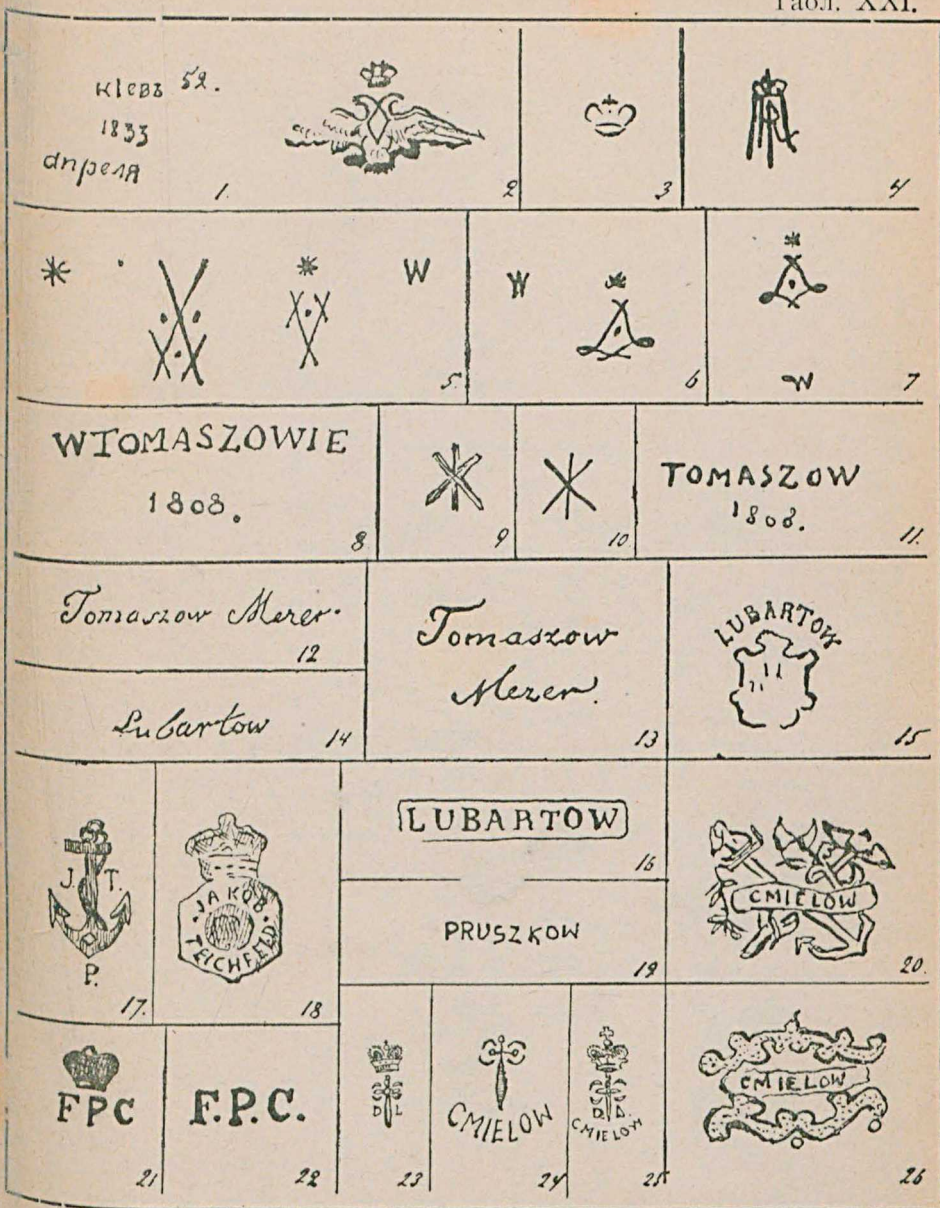 Табл. XXI.
Кіевъ 52.
1833
апреля
1.
2
3
4
W
5
W
6
W
7
WTOMASZOWIE
1808.
8
9
10
TOMASZOW
1808.
11.
Tomaszow Mezer.
12
Tomaszow
Mezer.
13
Lubartow
14
LUBARTOW
15
J. T.
P.
17.
JAKÓB
TEICHFELD
18
LUBARTOW
16
PRUSZKOW
19
CMIELOW
20.
FPC
21
F.P.C.
22
D L
23
CMIELOW
24
D. D.
CMIELOW
25
CMIELOW
26